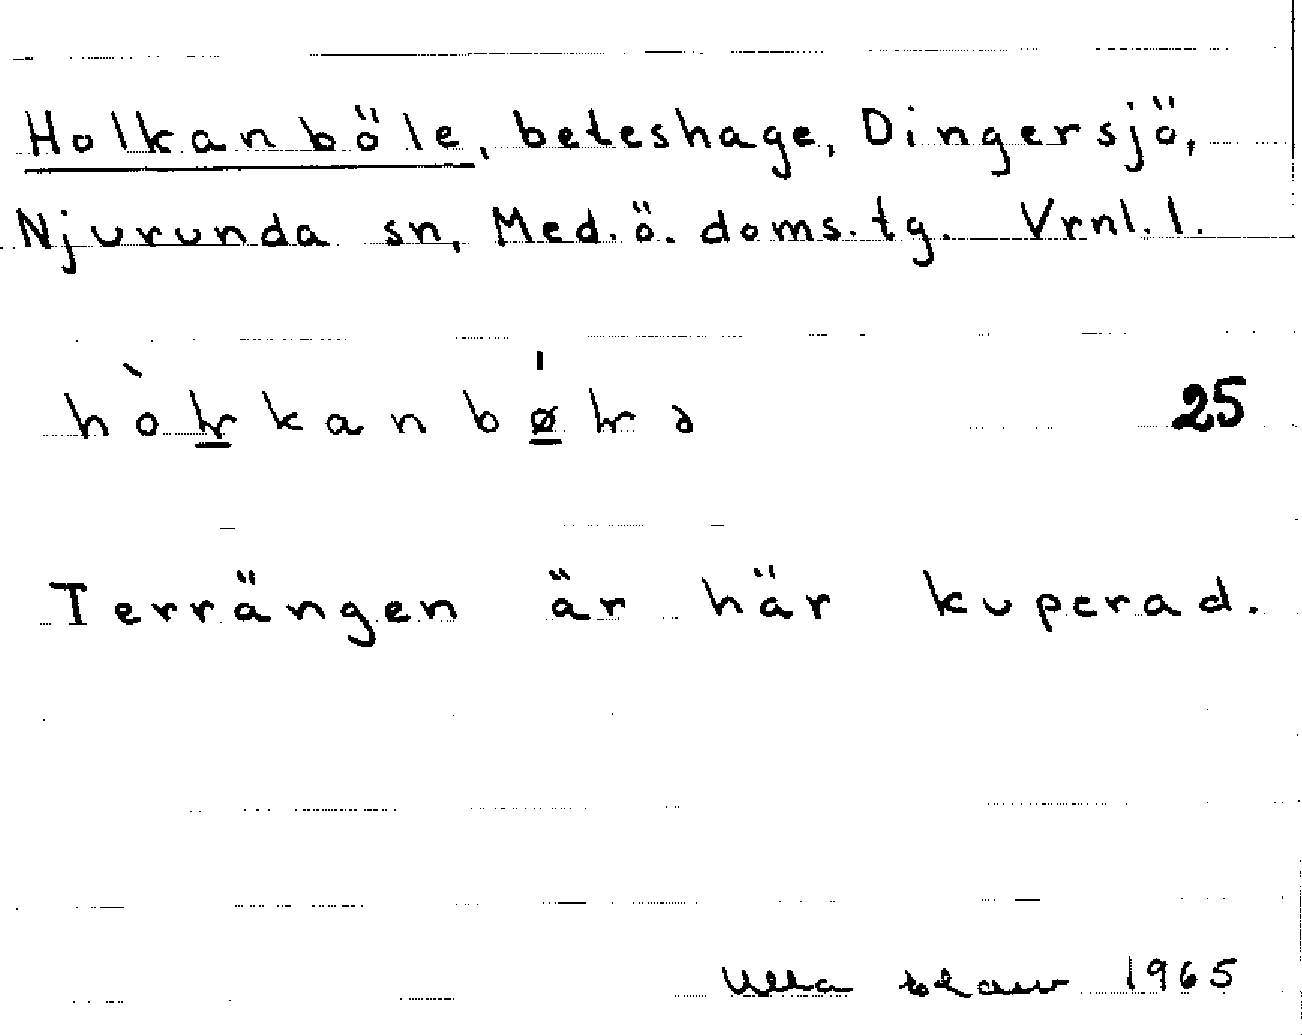 Holkanböle, beteshage, Dingersjö,
Njurunda sn, Med.ö. doms.tg. Vrnl.l.
25
Terrängen är här kuperad.
Ulla 1965